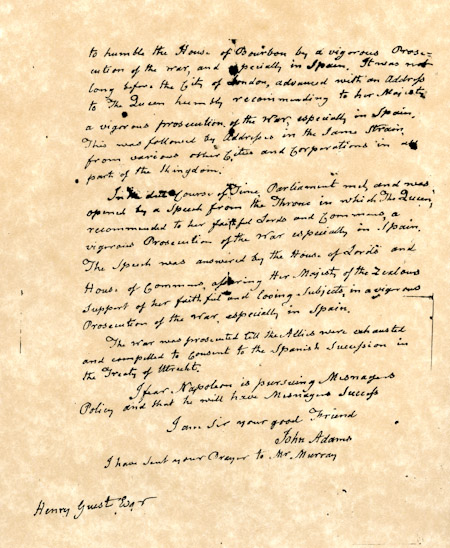 to humble the House of Bourbon by a vigorous Prose-
cution of the War, and especially in Spain. It was not
long before the City of London, advanced with an Address
to The Queen humbly recommending to her Majesty
a vigorous prosecution of the War, especially in Spain.
This was followed by Addresses in the Same Strain,
from various other Cities and Corporations in all
part of the Kingdom.
In the due Course of Time Parliament met, and was
opened by a Speech from the Throne in which The Queen,
recommended to her faithful Lords and Commons, a
vigorous Prosecution of the War especially in Spain.
The Speech was answered by the House of Lords and
House of Commons, assuring Her Majesty of the Zealous
Support of her faithful and loving Subjects, in a vigorous
Prosecution of the War, especially in Spain.
The War was prosecuted till the Allies were exhausted
and compelled to Consent to the Spanish Sucession in
the Treaty of Utrecht.
I fear, Napoleon is pursuing Mesnagers
Policy and that he will have Mesnagers Success
I am Sir your good Friend
John Adams
I have sent your Prayer to Mr. Murray
Henry Guest Esqr